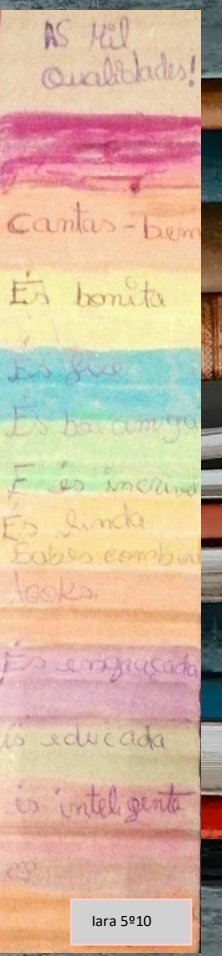 AS Mil
Qualidades!
Cantas-bem
És bonita
És fixe
És boa amiga
E és incrivel
És linda
Sabes combin
looks.
És engraçada
és educada
és inteligente
és
Iara 5º10